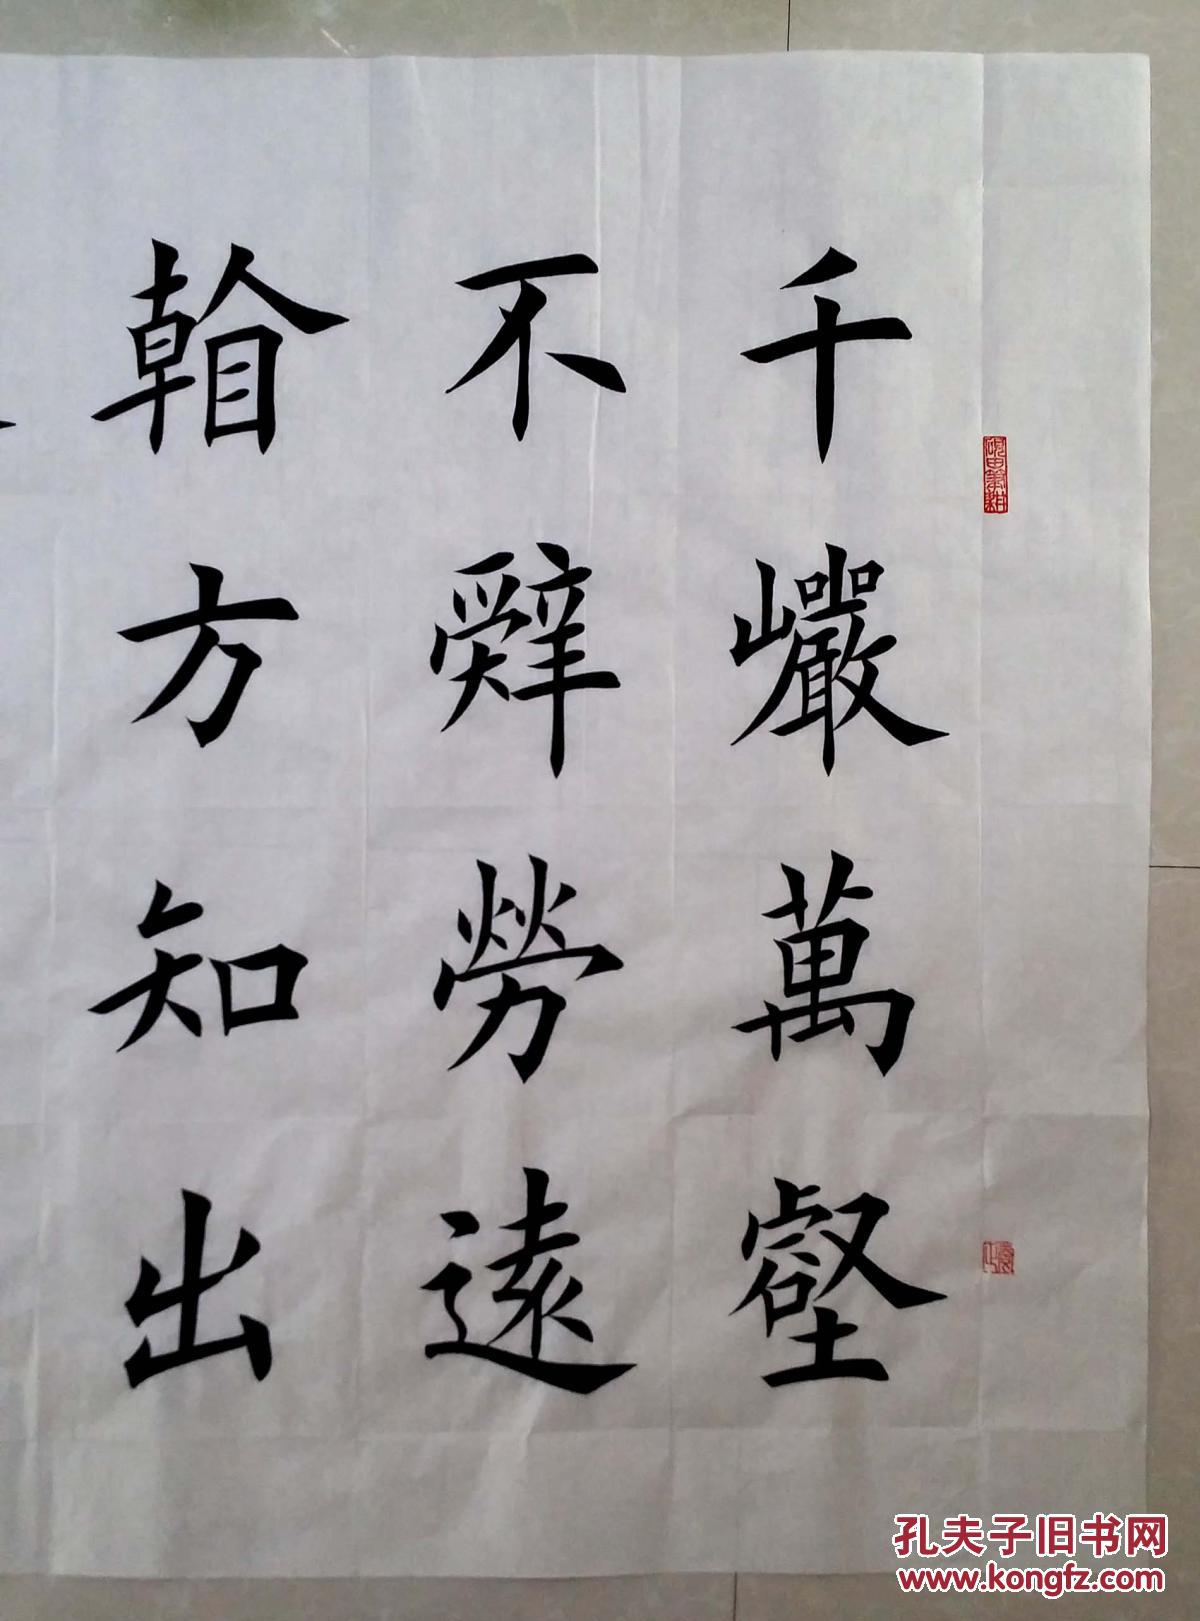 千巗萬壑
不辭勞遠
看方知出
孔夫子旧书网
www.kongfz.com